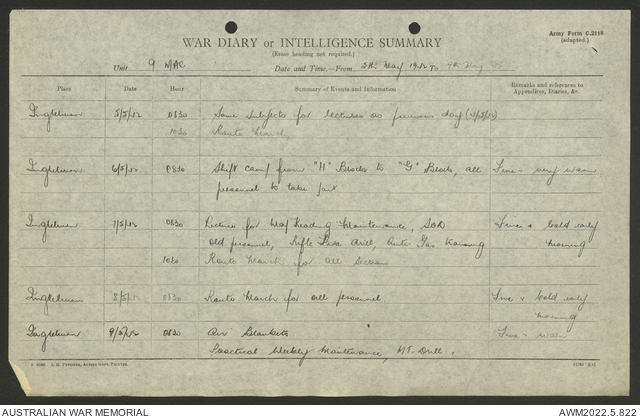 Army Form C.2118
(adapted.)
WAR DIARY or INTELLIGENCE SUMMARY
(Erase heading not required.)
Unit 9 MAC Date and Time.—From 5th May 1942 To 9th May
Place Date Hour Summary of Events and Information Remarks and references to
Appendices, Diaries, &c.
Ingleburn 5/5/42 0830 Same subjects for lectures as previous day
1030 Route March
Ingleburn 6/5/42 0830 Shift camp from "H" Blocks to "G" Blocks, all Fine - very warm
personnel to take part
Ingleburn 7/5/42 0830 Lectures for Map Reading Maintenance, Fine & Cold early
old personnel, Rifle drill, Anti Gas Training morning
1030 Route March for all Sections
Ingleburn 8/5/42 0830 Route March for all personnel Fine & Cold early
morning
Ingleburn 9/5/42 0830 Air Blankets Fine - warm
Weekly Maintenance, Drill.
AUSTRALIAN WAR MEMORIAL AWM2022.5.822